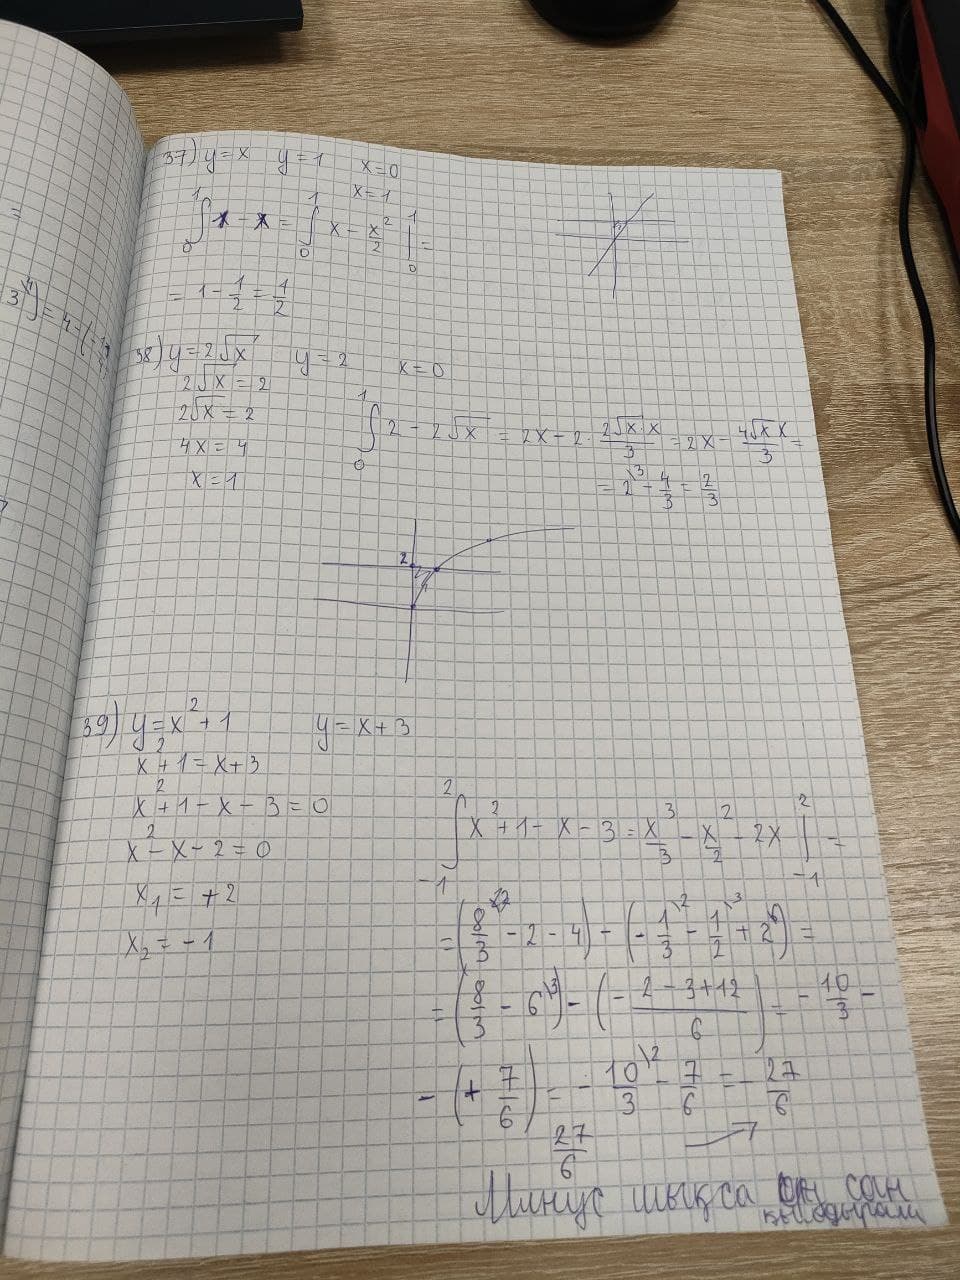 37) y=x y=1 x=0
x=1
∫₀¹ 1 - x = ∫₀¹ x - x²/2 |₀¹ =
= 1 - 1/2 = 1/2
38) y=2√x y=2 x=0
2√x = 2
2√x = 2
4x = 4
x = 1
∫₀¹ 2 - 2√x = 2x - 2· 2√x·x/3 = 2x - 4√x x/3 =
= 2\3 - 4/3 = 2/3
2
39) y=x²+1 y=x+3
x²+1=x+3
x²+1-x-3=0
x²-x-2=0
x₁=+2
x₂=-1
∫₋₁² x²+1-x-3 = x³/3 - x²/2 - 2x |₋₁² =
= (8/3 - 2 - 4) - (-1/3\2 - 1/2\3 + 2\6) =
= (8/3 - 6\3) - (- 2-3+12/6) = - 10/3 -
- (+ 7/6) = - 10/3\2 - 7/6 = - 27/6
27/6
Минус шықса он сан